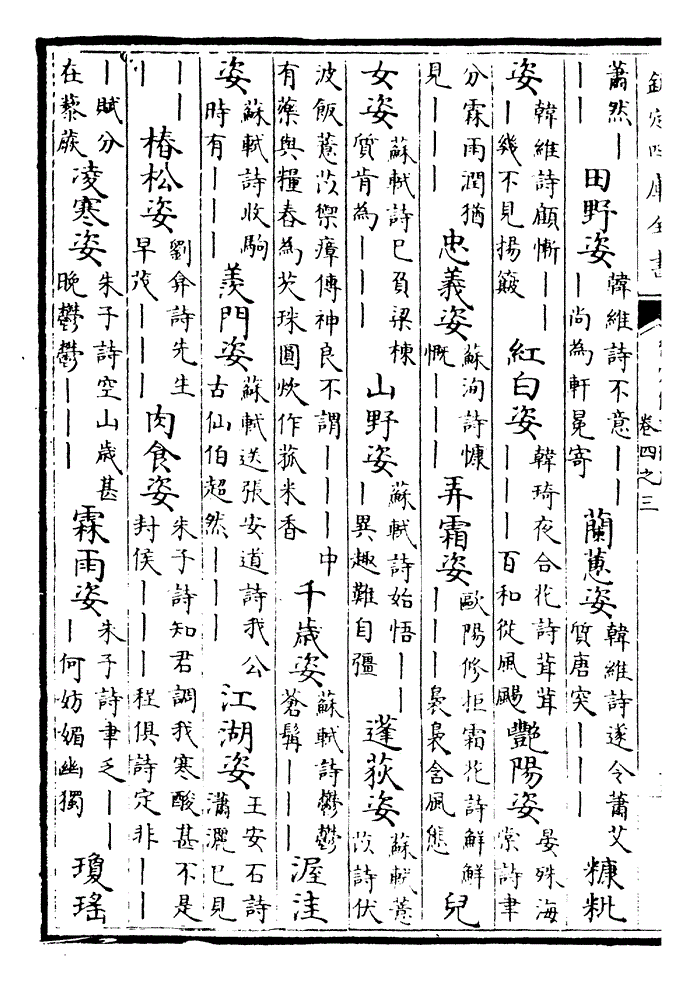 欽定四庫全書
卷四之三
蕭然｜｜｜田野姿韓維詩不意｜｜｜尚為軒冕寄蘭蕙姿韓維詩遂令蕭艾質唐突｜｜｜糠粃
姿韓維詩顧慚｜｜｜幾不見揚簸紅白姿韓琦夜合花詩茸茸｜｜｜百和從風颺艷陽姿晏殊海棠詩聿
分霖雨潤猶見｜｜｜忠義姿蘇洵詩慷慨｜｜｜弄霜姿歐陽修拒霜花詩鮮鮮｜｜｜裊裊含風態兒
女姿蘇軾詩已負梁棟質肯為｜｜｜山野姿蘇軾詩始悟｜｜｜異趣難自彊蓬荻姿蘇軾薏苡詩伏
波飯薏苡禦瘴傳神良不謂｜｜｜中有藥與糧舂為芡珠圓炊作菰米香千歲姿蘇軾詩鬱鬱蒼髯｜｜｜渥洼
姿蘇軾詩收駒時有｜｜｜羨門姿蘇軾送張安道詩我公古仙伯超然｜｜｜江湖姿王安石詩瀟灑已見
｜｜｜椿松姿劉弇詩先生早茂｜｜｜肉食姿朱子詩知君調我寒酸甚不是封侯｜｜｜程俱詩定非｜｜
｜賦分在藜蕨凌寒姿朱子詩空山歲甚晚鬱鬱｜｜｜霖雨姿朱子詩聿乏｜｜｜何妨媚幽獨瓊瑤